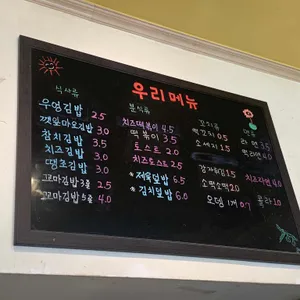 우리메뉴
식사류
우영김밥 2.5
깻잎마요김밥 3.0
참치김밥 3.5
치즈김밥 3.0
땡초김밥 3.0
꼬마김밥 3줄 2.5
꼬마김밥 5줄 4.0
분식류
치즈떡볶이 4.5
떡볶이 3.5
토스트 2.0
치즈토스트 2.5
*제육덮밥 6.5
*김치덮밥 6.0
꼬치류
떡꼬치 0.5
소세지 1.5
소떡소떡 2.0
오뎅 1개 0.7
라면 3.5
떡라면 4.0
치즈라면 4.0
콜라 1.0